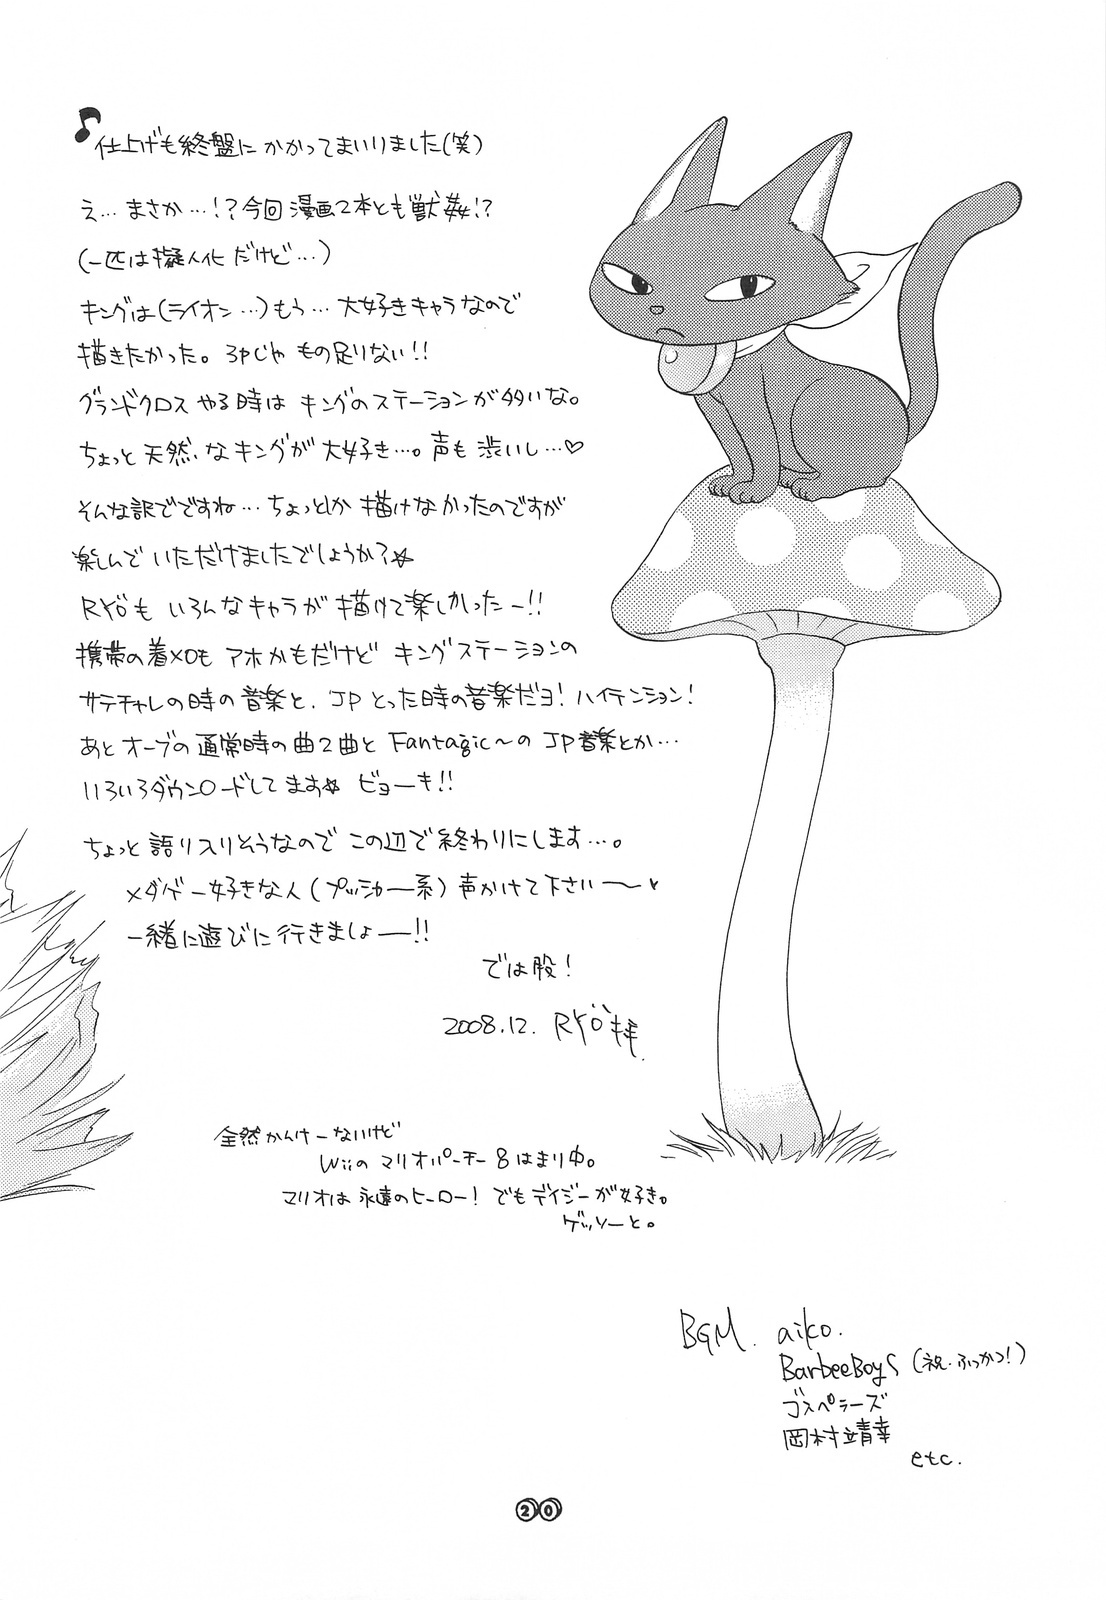 仕上げも終盤にかかってまいりました(笑)
え…まさか…!?今回漫画2本とも獣姦!?
(一匹は擬人化だけど…)
キングは(ライオン…)もう…大好きキャラなので
描きたかった。3Pじゃもの足りない!!
グランドクロスやる時はキングのステーションが多いな。
ちょっと天然なキングが大好き…。声も渋いし…♡
そんな訳でですね…ちょっとしか描けなかったのですが
楽しんでいただけましたでしょうか?☆
RYÖもいろんなキャラが描けて楽しかったー!!
携帯の着メロもアホかもだけどキングステーションの
サテチャレの時の音楽と、JPとった時の音楽だヨ!ハイテンション!
あとオーブの通常時の曲2曲とFantagic〜のJP音楽とか…
いろいろダウンロードしてます☆ビョーキ!!
ちょっと語り入りそうなのでこの辺で終わりにします…。
メダゲー好きな人(プッシャー系)声かけて下さい〜
一緒に遊びに行きましょー!!
では股!
2008.12. RYÖ拝
全然かんけーないけど
Wiiのマリオパーチー8はまり中。
マリオは永遠のヒーロー!でもデイジーが好き。
ゲッソーと。
BGM. aiko.
BarbeeBoys(祝・ふっかつ!)
ゴスペラーズ
岡村靖幸
etc.
20